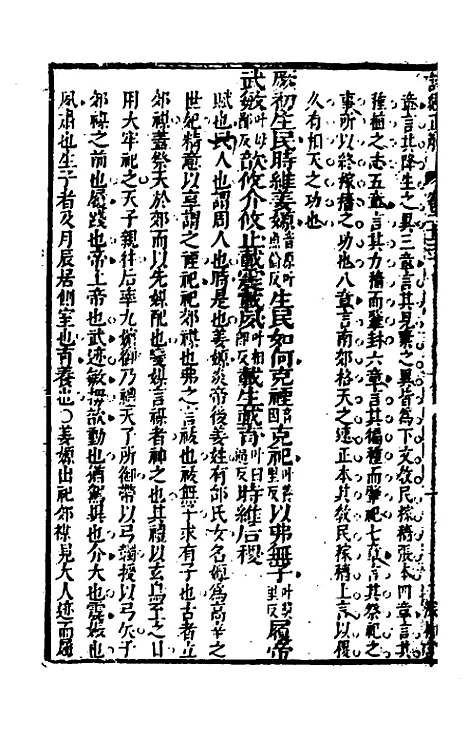 章言其降生之異三章言其見棄之異皆為下文教民稼穡張本四章言其
種植之志五章言其力穡而肇封六章言其徧種而肇祀七章言其祭祀之
事所以終稼穡之功也八章言南郊格天之速正本其敎民稼穡上言以後
久有相天之功也
厥初生民時維姜嫄生民如何克禋克祀以弗無子履帝
武敏歆攸介攸止載震載夙載生載育時維后稷
賦也民人也謂周人也時是也姜嫄炎帝後姜姓有邰氏女名嫄為高辛之
世妃精意以享謂之禋祀祀郊禖也弗之言祓也祓無子求有子也古者立
郊禖蓋祭天於郊而以先媒配也變媒言禖者神之也其禮以玄鳥至之日
用大牢祀之天子親往后率九嬪御乃禮天子所御帶以弓韣授以弓矢于
郊禖之前也履踐也帝上帝也武迹敏拇歆動也猶驚異也介大也震娠也
夙肅也生子者及月辰居側室也育養也○姜嫄出祀郊禖見大人迹而履